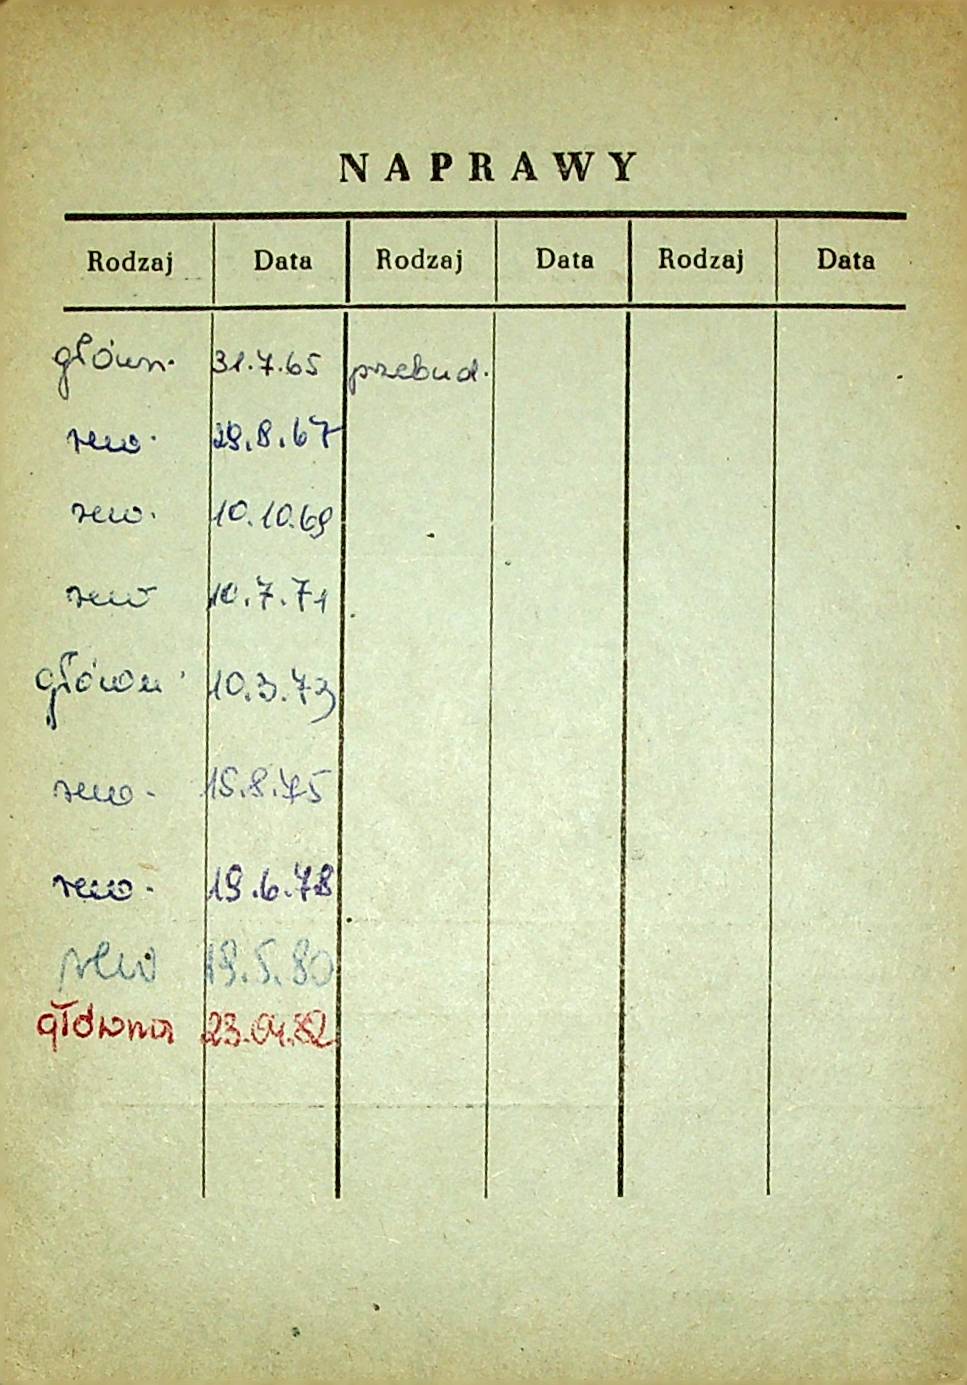 NAPRAWY
Rodzaj Data Rodzaj Data Rodzaj Data
główn. 31.7.65 przebud.
rew. 29.8.67
rew. 10.10.69
rew 10.7.71
główn. 10.3.73
rew. 15.8.75
rew. 19.6.78
rew 19.5.80
główna 23.04.82